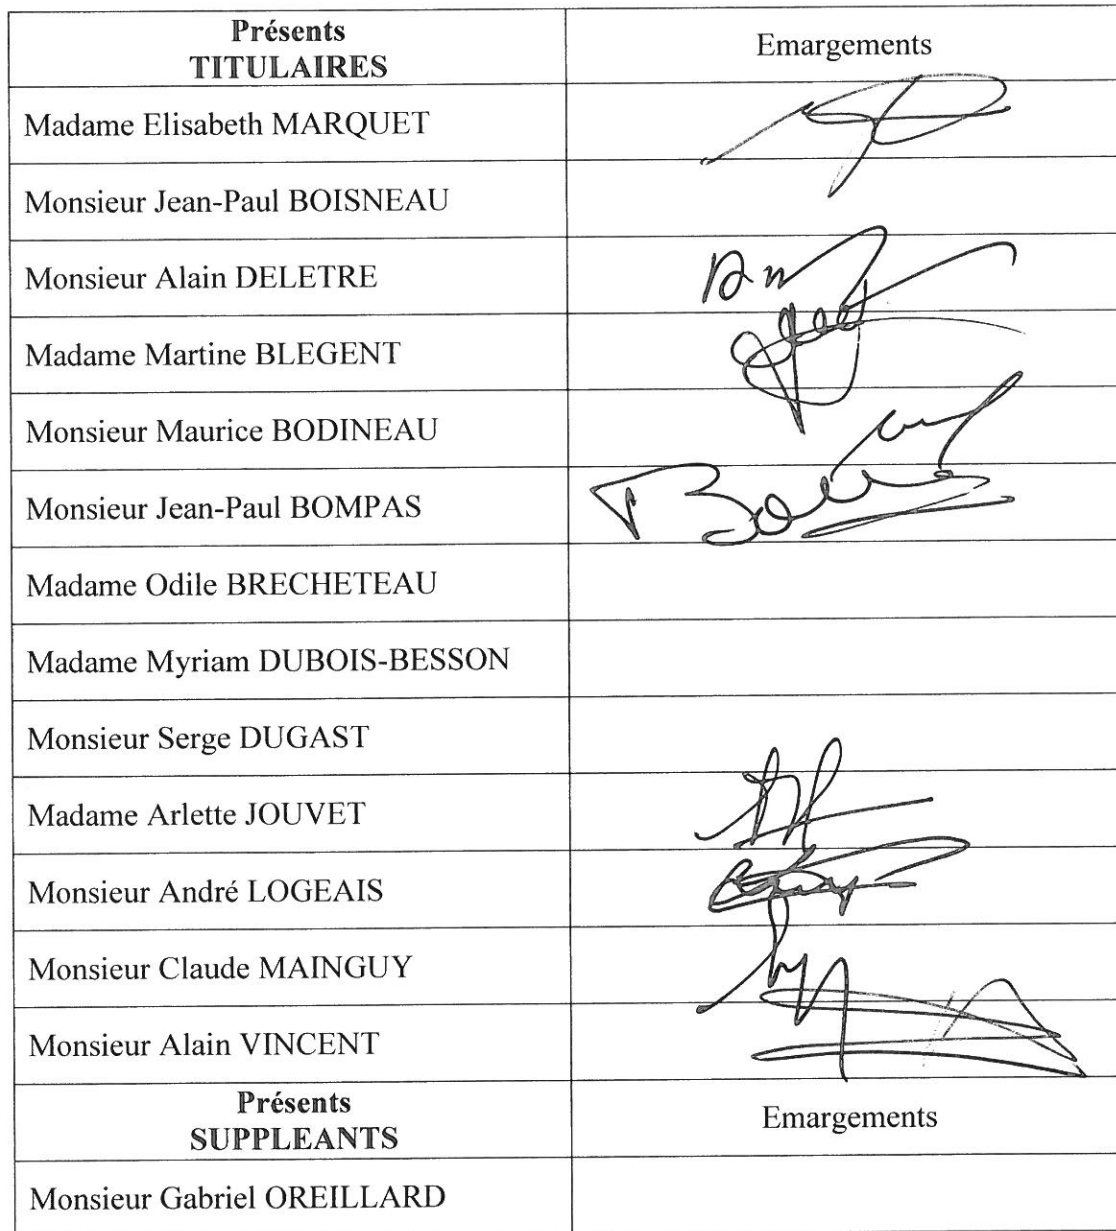 Présents
TITULAIRES
Emargements
Madame Elisabeth MARQUET
Monsieur Jean-Paul BOISNEAU
Monsieur Alain DELETRE
Madame Martine BLEGENT
Monsieur Maurice BODINEAU
Monsieur Jean-Paul BOMPAS
Madame Odile BRECHETEAU
Madame Myriam DUBOIS-BESSON
Monsieur Serge DUGAST
Madame Arlette JOUVET
Monsieur André LOGEAIS
Monsieur Claude MAINGUY
Monsieur Alain VINCENT
Présents
SUPPLEANTS
Emargements
Monsieur Gabriel OREILLARD